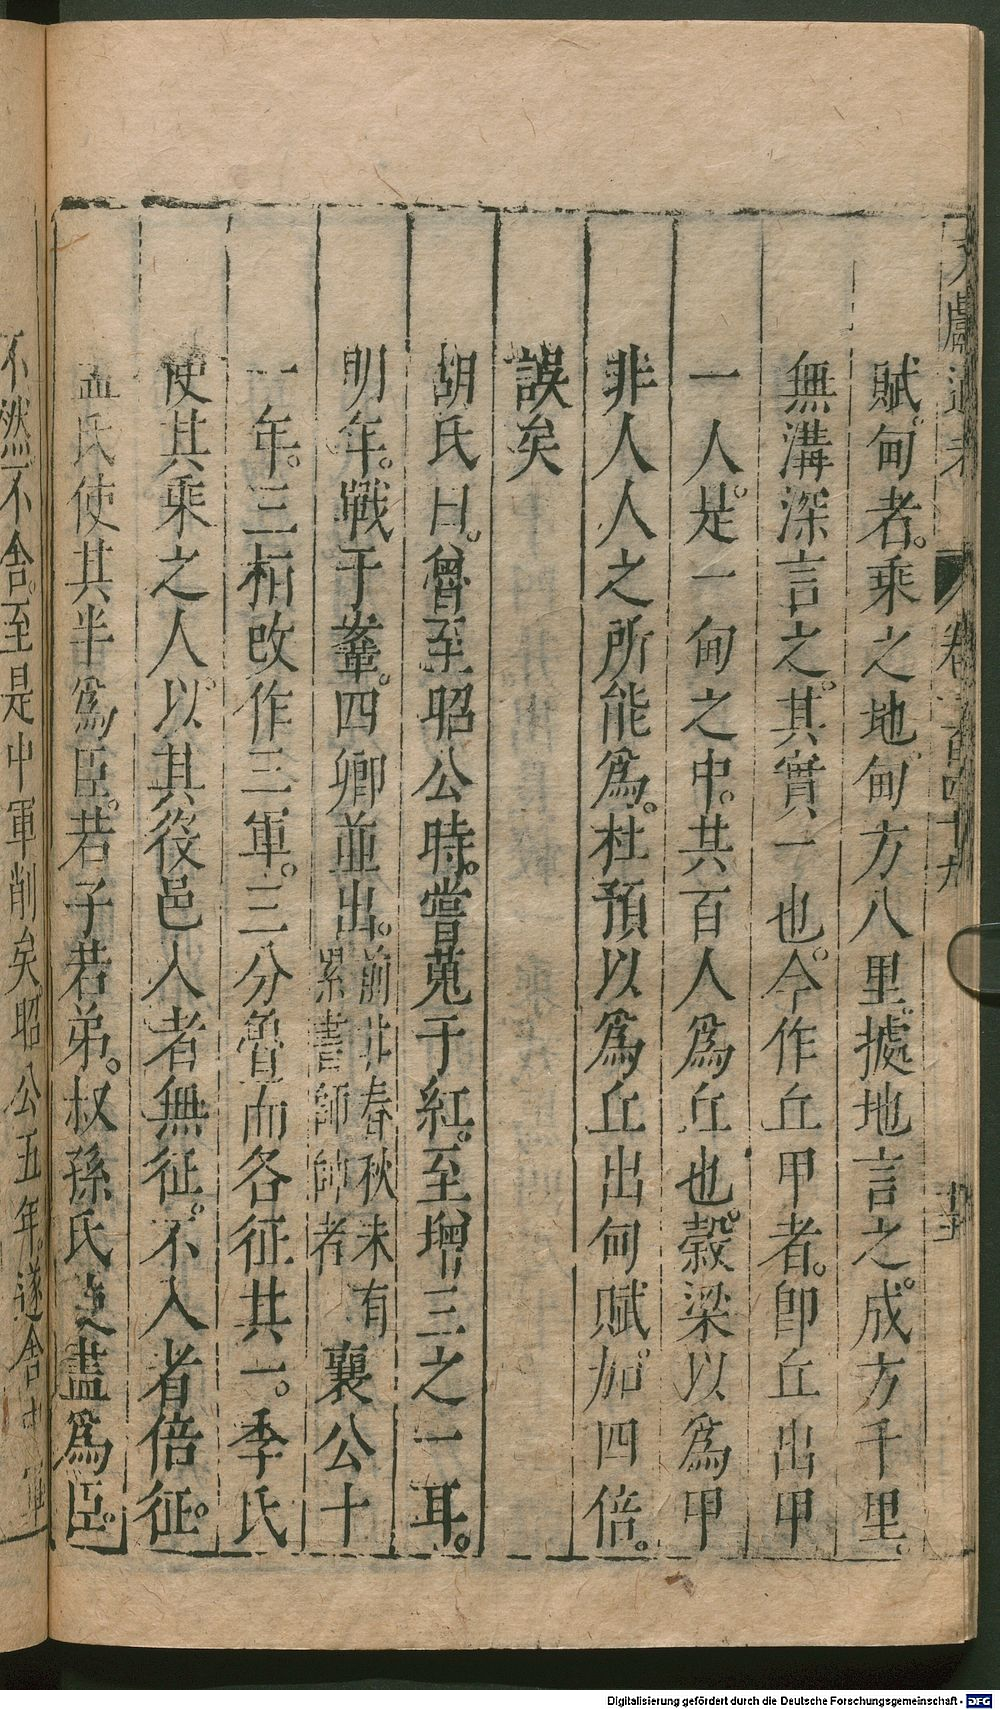 文獻通考 卷一百四十九
賦甸者乘之地甸方八里。據地言之。成方千里。
無溝深言之。其實一也。今作丘甲者。卽丘出甲
一人。是一甸之中。共百人爲丘也。穀梁以爲甲
非人人之所能爲。杜預以爲丘出甸賦。加四倍。
誤矣
胡氏曰。魯至昭公時。嘗蒐于紅。至增三之一耳。
明年。戰于鞌。四卿並出。前此春秋未有累書師帥者 襄公十
一年。三桓改作三軍。三分魯而各征其一。季氏
使其乘之人。以其役邑入者無征。不入者倍征。
孟氏使其半爲臣。若子若弟。叔孫氏使盡爲臣。
不然不舍。至是中軍削矣昭公五年。遂舍中軍
Digitalisierung gefördert durch die Deutsche Forschungsgemeinschaft - DFG